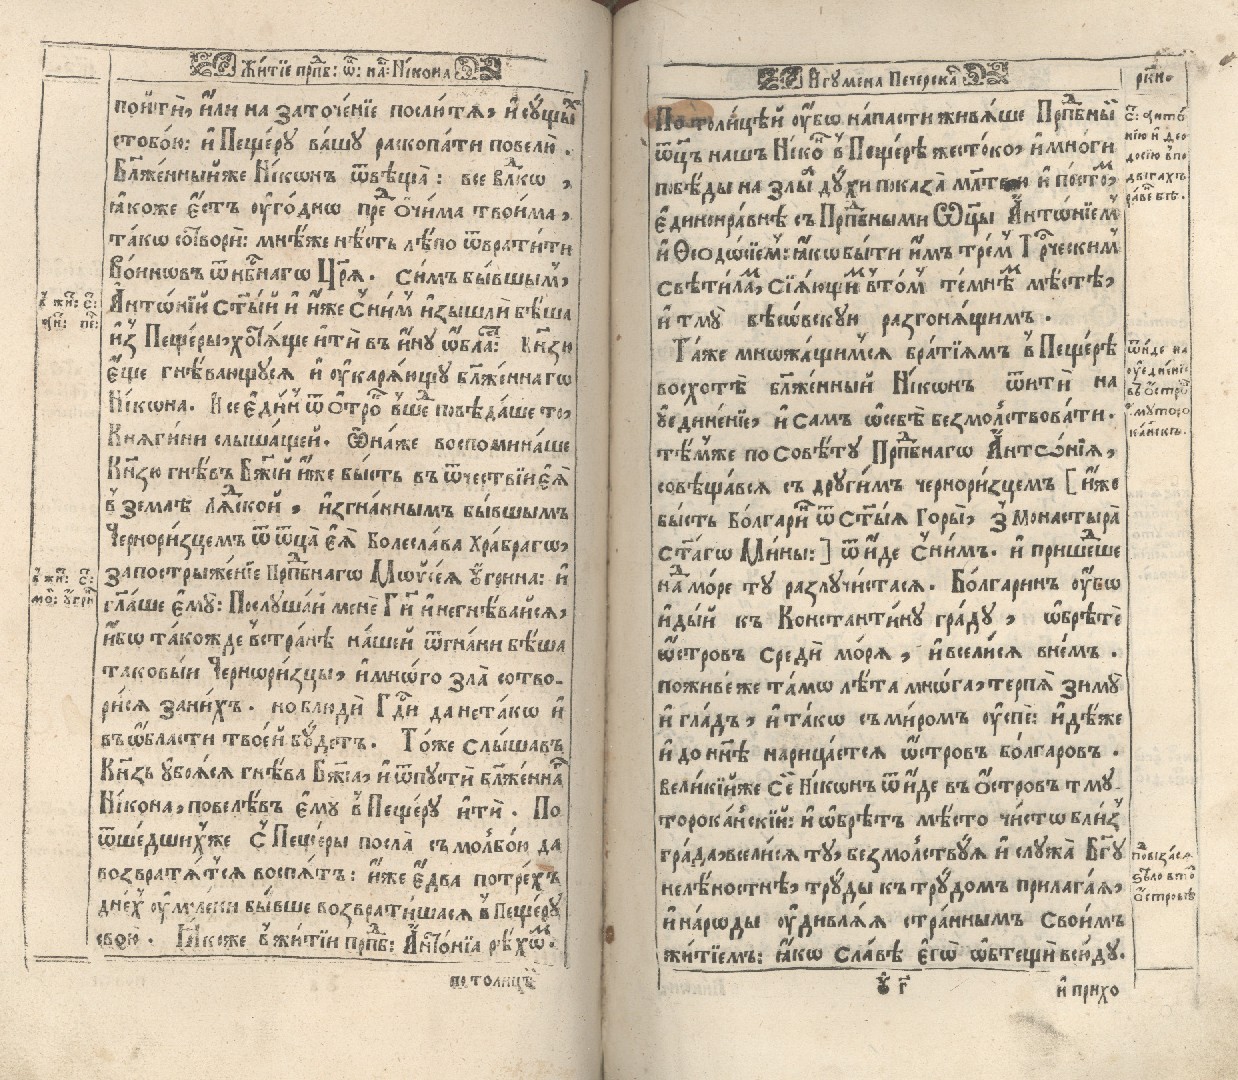 Жи́тїе прпⷣб: ѿ: на: Ні́кона
пойтѝ, и҆́ли на заточе́нїе послю́тѧ, и҆ сꙋ́щыⷯ
стобо́ю: и҆ Пеще́рꙋ ва́шꙋ раскопа́ти повелю̀.
Бл҃же́нныйже Ні́конъ ѿвѣща̀: все влⷣко,
ꙗ҆коже є҆́стъ ᲂу҆го́дно преⷣ ѻ҆чи́ма твои́ма,
та́кѡ сотворѝ: мнѣ́же нѣ́сть лѣ́по ѿврати́ти
во́иновъ ѿ нбⷭ҇нагѡ Цр҃ѧ̀. Си́мъ бы́вшымъ,
А҆нтѡ́нїй ст҃ы́й и҆ и҆̀же с̾ни́мъ и҆зышлѝ бѣ́ша
и҆з̾ Пеще́ры, хотѧ́ще и҆тѝ въ и҆́нꙋ ѡ҆́бласть: Кн҃зю
є҆́ще гнѣ́вающꙋсѧ и҆ ᲂу҆карѧ́ющꙋ бл҃же́ннагѡ
Ні́кона. И҆ се є҆ди́нъ ѿ ѻ҆́трокъ в̾ше́дъ повѣ́даше то̀,
Кнѧги́ни слы́шащей. Ѻ҆на́же воспомина́ше
Кн҃зю гнѣ́въ Бж҃їй и҆́же бы́сть въ ѿчествїи є҆ѧ̀
в̾ землѝ Лѧ́дской, и҆згна́ннымъ бы́вшымъ
Чернори́зцемъ ѿ ѻ҆тца̀ є҆ѧ̀ Болесла́ва Хра́брагѡ,
за пострыже́нїе Прпⷣбнагѡ Мѡѷсе́ѧ Ѹ҆́грина: и҆
гл҃аше є҆мꙋ̀: Послꙋ́шай менѐ Гн҃и и҆ не гнѣ́вайсѧ,
и҆́бо та́кожде в̾ странѣ̀ на́шей ѿгна́ни бѣ́ша
таковы́и Чернѡри́зцы, и҆ мно́гѡ зла̀ сотво-
ри́сѧ за ни́хъ. но блюдѝ Гдⷭ҇и да не та́кѡ и҆
въ ѡ҆́бласти твое́й бꙋ́детъ. То́же слы́шавъ
Кн҃зь ᲂу҆боѧ́сѧ гнѣ́ва Бж҃їа, и҆ ѿпꙋстѝ бл҃же́ннаⷢ
Ні́кона, повелѣ́въ є҆мꙋ̀ в̾ Пеще́рꙋ и҆тѝ. По
ѿше́дшихже с̾ Пеще́ры посла̀ съ молбо́ю да
возвратѧ́тсѧ воспѧ́тъ: и҆́же є҆два̀ по тре́хъ
дне́хъ ᲂу҆моле́ни бы́вше возврати́шасѧ в̾ Пеще́рꙋ
свою̀. Ꙗ҆́коже в̾ житїи прпⷣб: А҆нтѡ́нїа рѣ́хомъ.
по толицѣⷯ
в̾ жи: с:
а҆н: пе:
в̾ жи: с:
мо: ᲂу҆́гри
И҆гꙋ́мена Пече́рскаⷢ
рк҃ѳ
По толи́цѣй ᲂу҆́бѡ на́пасти живѧ́ше Прпⷣбны́й
ѿц҃ъ нашъ Ні́конъ в̾ Пеще́рѣ же́стоко, и҆ мно́ги
побѣ́ды на злы́ѧ дꙋ́хи показа̀ мл҃твою и҆ посто́мъ,
є҆динонра́внѣ съ Прпⷣбными Ѻ҆тцы̀ А҆нтѡ́нїемъ
и҆ Ѳеѻдо́сїемъ: ꙗ҆́кѡ бы́ти и҆̀мъ тре́мъ Трⷪ҇ческимъ
свѣти́ламъ, сїѧ́ющимъ в̾ то́мъ те́мнѣ мѣ́стѣ,
и҆ тмꙋ̀ бѣсѡ́вскꙋю разгонѧ́щимъ.
Та́же мнѡжа́щимсѧ бра́тїѧмъ в̾ Пеще́рѣ
восхотѣ̀ бл҃же́нный Ні́конъ ѿитѝ на
ᲂу҆едине́нїе, и҆ са́мъ ѡ҆ себѣ̀ безмо́лствовати.
тѣ́мже по совѣ́тꙋ Прпⷣбнагѡ А҆нтѡ́нїѧ,
совѣща́всѧ съ дрꙋги́мъ черно́ризцемъ [и҆́же
бы́сть Бо́лгаринъ ѿ Ст҃ы́ѧ Горы̀, з̾ Монастырѧ̀
Ст҃а́гѡ Ми́ны:] ѿи́де с̾ни́мъ. и҆ прише́дше
на мо́ре тꙋ̀ разлꙋчи́стасѧ. Бо́лгаринъ ᲂу҆́бѡ
и҆ды́й къ Константи́нꙋ гра́дꙋ, ѡ҆брѣ́те
ѻ҆́стровъ средѝ мо́рѧ, и҆ всели́сѧ в не́мъ.
поживе́ же та́мѡ лѣ́та мнѡ́га, терпѧ̀ зи́мꙋ
и҆ гла́дъ, и҆ та́кѡ съ ми́ромъ ᲂу҆спѐ: и҆дѣ́же
и҆ до нн҃ѣ нарица́етсѧ ѻ҆́стровъ бо́лгаровъ.
Вели́кїйже се́й Ні́конъ ѿи́де въ ѻ҆́стровъ тмꙋ-
торока́нскїй: и҆ ѡ҆брѣ́тъ мѣ́сто чи́сто бли́з̾
гра́да, всели́сѧ тꙋ̀, безмо́лствꙋѧ и҆ слꙋжа̀ Бг҃ꙋ
нелѣ́ностнѣ, трꙋды̀ къ трꙋдо́мъ прилага́ѧ,
и҆ наро́ды ᲂу҆дивлѧ́ѧ стра́ннымъ свои́мъ
житїе́мъ: ꙗ҆́кѡ сла́вѣ є҆гѡ̀ ѡ҆бтещѝ всю́дꙋ.
Ѹ҆ г҃
и҆ прихо
С: а҆нтѡ́
нїю и҆ Ѳео
до́сїю в̾ по
двигахъ
ра́венъ бѣ̀.
ѿиде на
ᲂу҆едине́нїе
въ ѻ҆́стровъ
тмꙋторо
ка́нскъ.